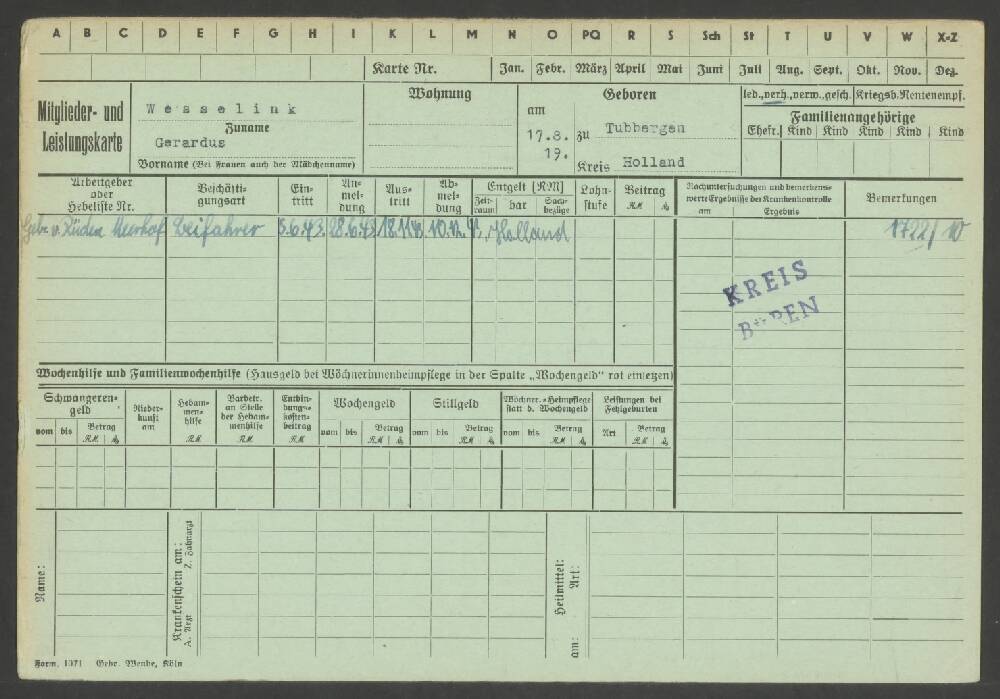 A B C D E F G H I K L M N O PQ R S Sch St T U V W X-Z
Karte Nr. Jan. Febr. März April Mai Juni Juli Aug. Sept. Okt. Nov. Dez.
Mitglieder- und
Leistungskarte
Wesselink
Zuname
Gerardus
Vorname (Bei Frauen auch der Mädchenname)
Wohnung
Geboren
am
17.8. zu Tubbergen
19.
Kreis Holland
led., verh., verw., gesch. Kriegsb. Rentenempf.
Familienangehörige
Ehefr. Kind Kind Kind Kind Kind
Arbeitgeber
oder
Hebeliste Nr.
Beschäfti-
gungsart
Ein-
tritt
An-
mel-
dung
Aus-
tritt
Ab-
mel-
dung
Entgelt [RM]
Zeit-
raum
bar
Sach-
bezüge
Lohn-
stufe
Beitrag
RM
Nachuntersuchungen und bemerkens-
werte Ergebnisse der Krankenkontrolle
am Ergebnis
Bemerkungen
Gebr. v. Rüden Meerhof Beifahrer 5.6.43. 28.6.43. 18.11.43. 10.12.43. Holland 1722/10
KREIS
Wochenhilfe und Familienwochenhilfe (Hausgeld bei Wöchnerinnenheimpflege in der Spalte „Wochengeld" rot einsetzen)
Schwangeren-
geld
vom bis Betrag
RM
Nieder-
kunft
am
Hebam-
men-
hilfe
RM
Barbetr.
an Stelle
der Hebam-
menhilfe
RM
Entbin-
dungs-
kosten-
beitrag
RM
Wochengeld
vom bis Betrag
RM
Stillgeld
vom bis Betrag
RM
Wöchner.-Heimpflege
statt d. Wochengeld
vom bis Betrag
RM
Leistungen bei
Fehlgeburten
Art Betrag
RM
Name:
Krankenschein am:
A. Arzt Z. Zahnarzt
Heilmittel:
am: Art:
Form. 1071 Gebr. Wende, Köln